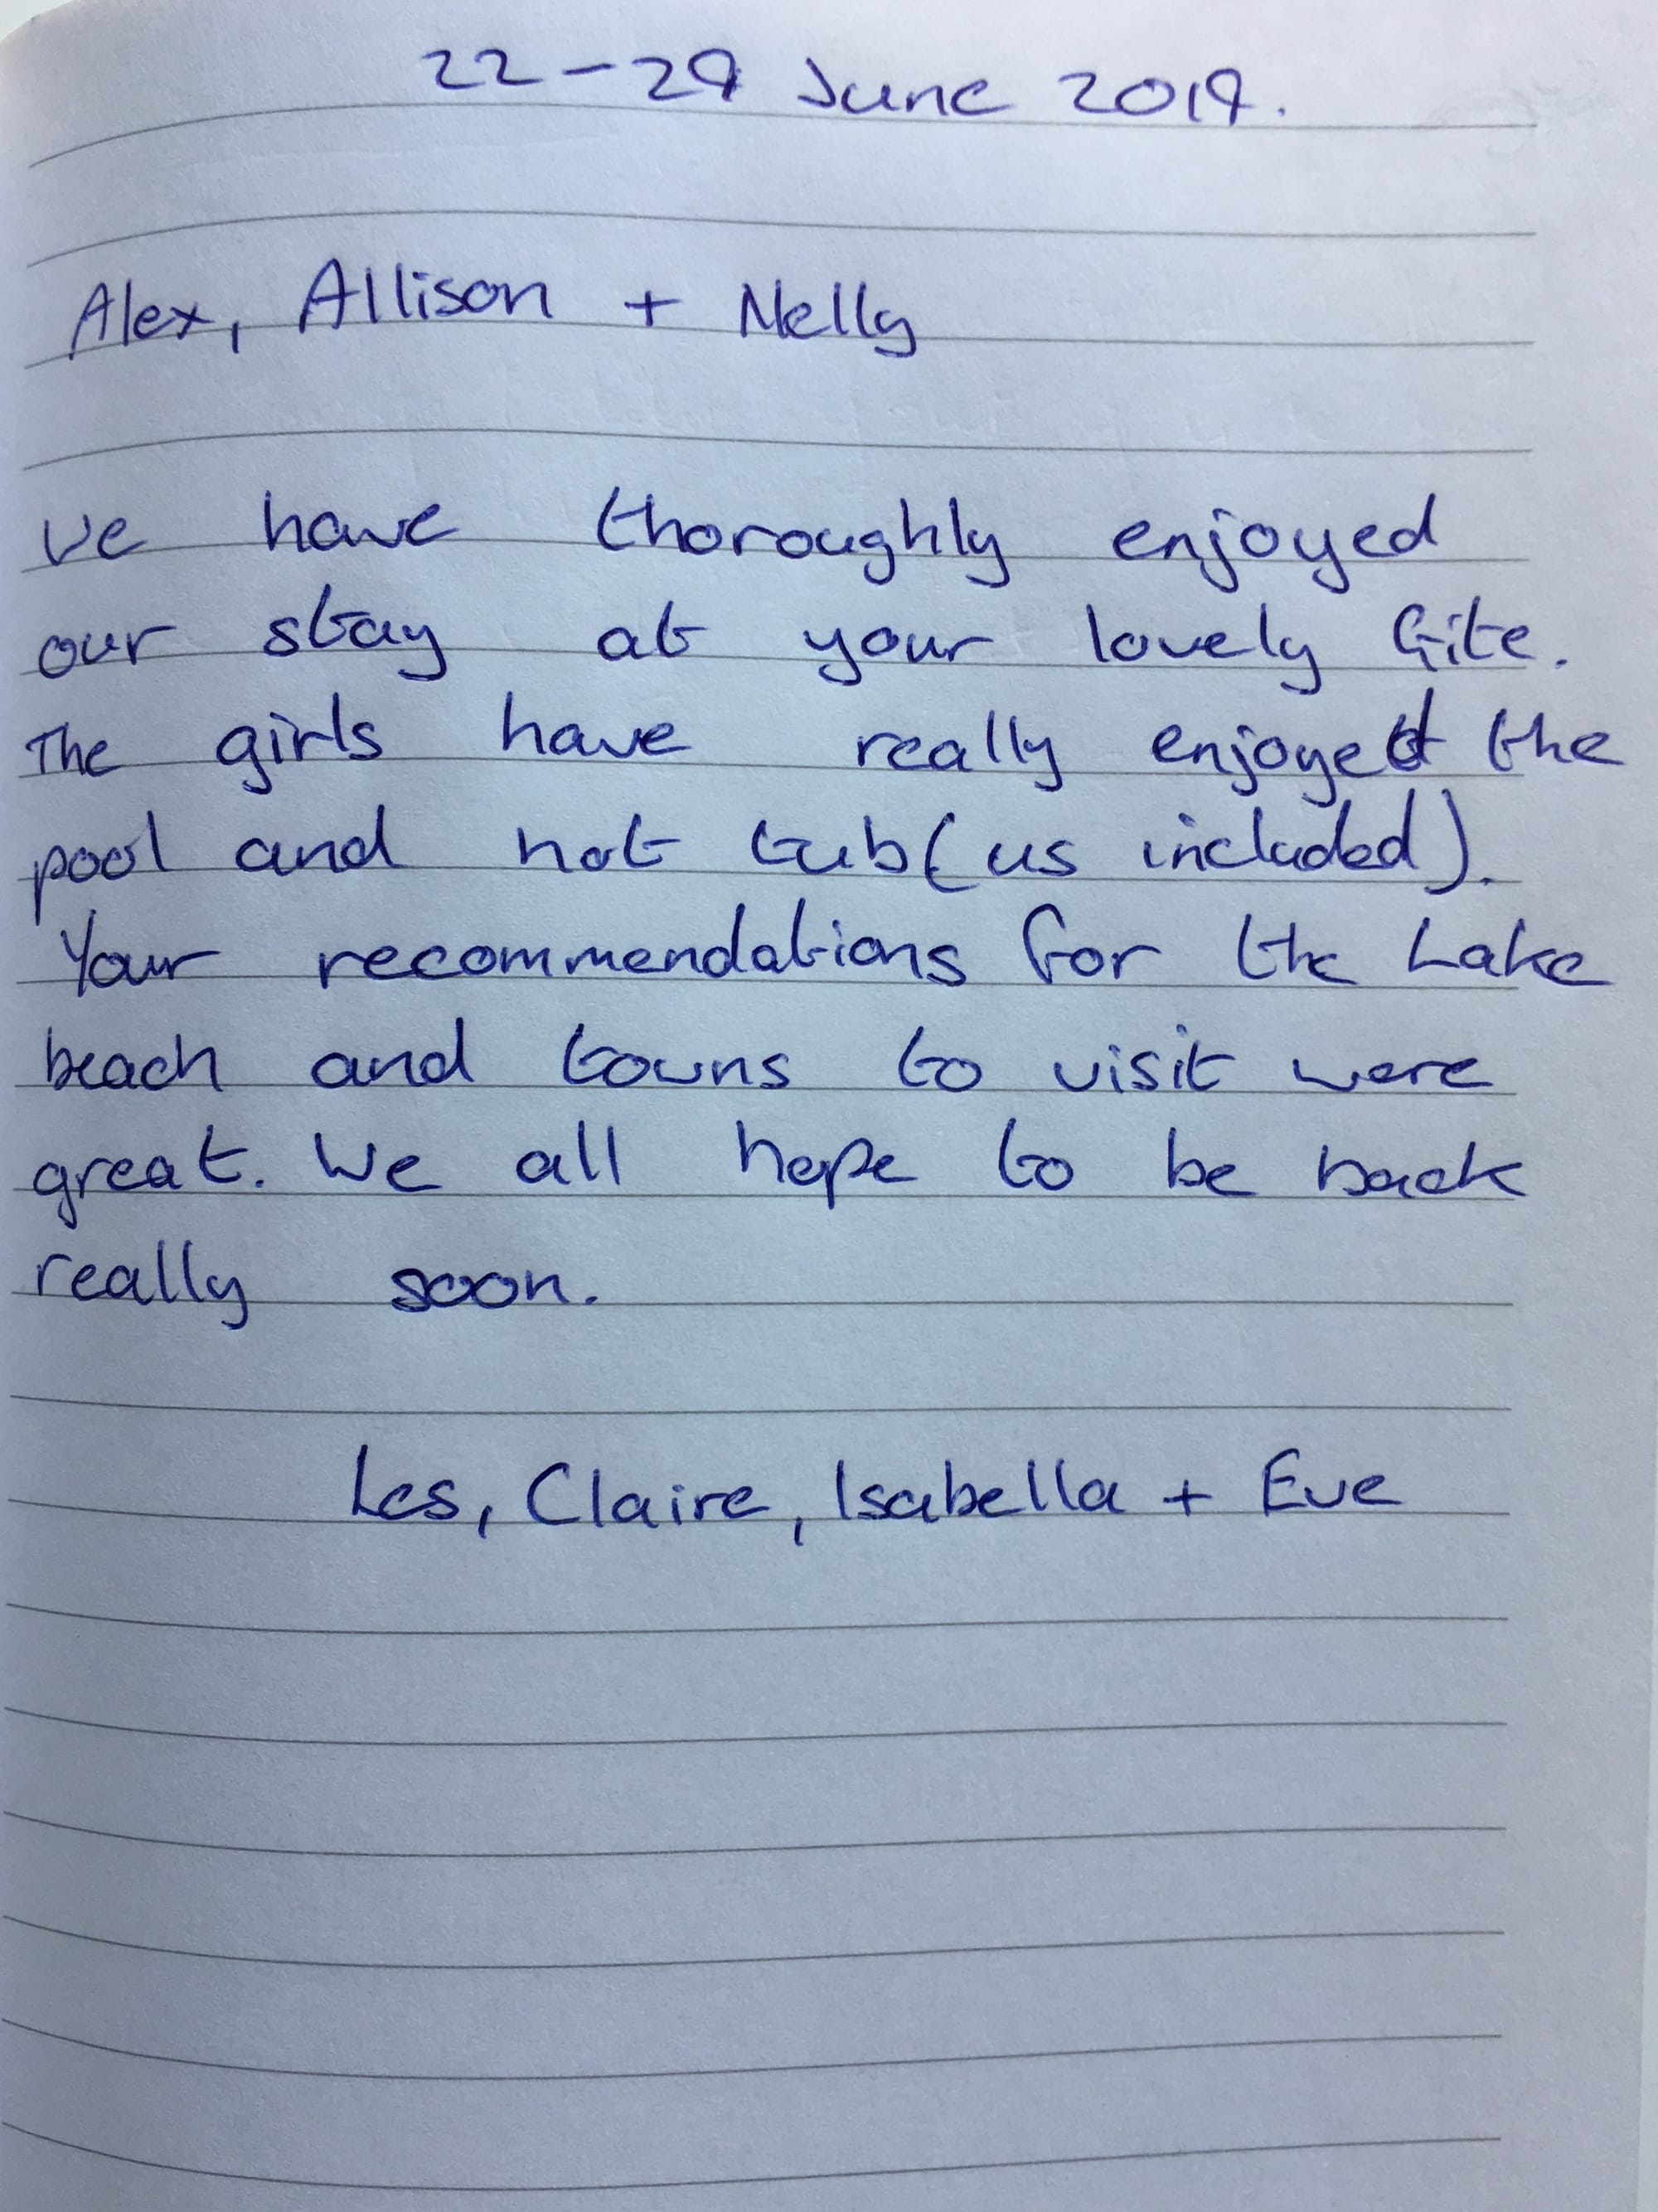 22-29 June 2019.
Alex, Allison + Nelly
We have thoroughly enjoyed
our stay at your lovely Gite.
The girls have really enjoyed the
pool and hot tub (us included).
Your recommendations for the Lake
beach and towns to visit were
great. We all hope to be back
really soon.
Les, Claire, Isabella + Eve